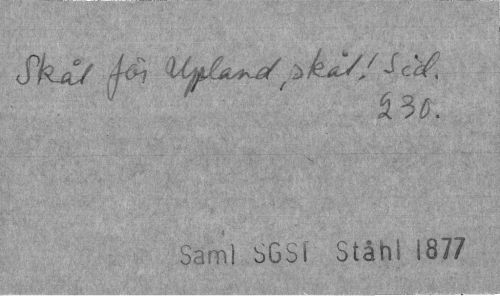 Skål för Upland, skål! Sid.
230.
Saml SGSI Ståhl 1877